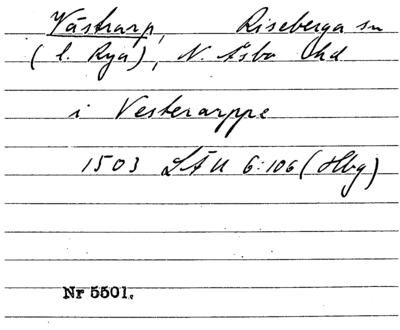 Västrarp, Riseberga sn
(l. Rya), N. Åsbo hd
i Vesterarppe
1503 LÄU 6:106 (Hbg)
Nr 5501.